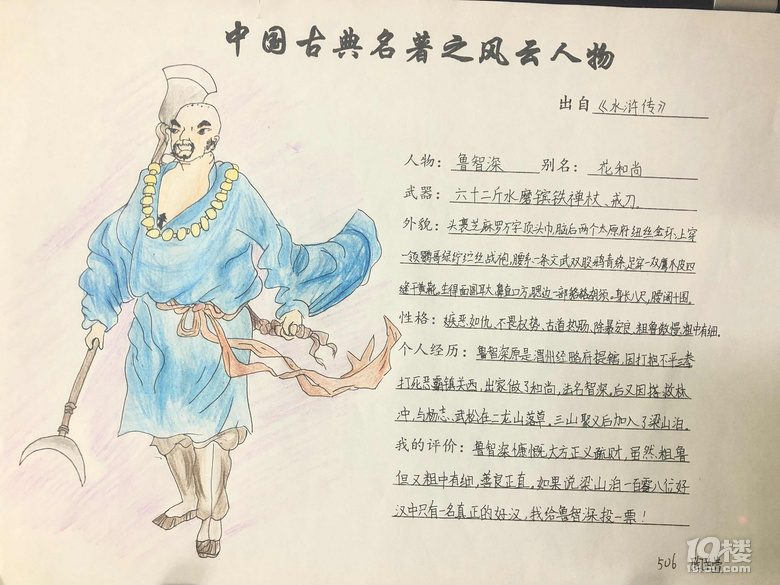 中国古典名著之风云人物
出自《水浒传》
人物：鲁智深 别名：花和尚
武器：六十二斤水磨镔铁禅杖、戒刀
外貌：头裹芝麻罗万字顶头巾，脑后两个太原府纽丝金环，上穿
一领鹦哥绿纻丝战袍，腰系一条文武双股鸦青绦，足穿一双鹰爪皮四
缝干黄靴。生得面圆耳大，鼻直口方，腮边一部貉胡须。身长八尺，腰阔十围。
性格：嫉恶如仇、不畏权势、古道热肠、除暴安良、粗鲁傲慢、粗中有细。
个人经历：鲁智深原是渭州经略府提辖，因打抱不平三拳
打死恶霸镇关西，出家做了和尚，法名智深。后又因搭救林
冲，与杨志、武松在二龙山落草。三山聚义后加入了梁山泊。
我的评价：鲁智深慷慨大方正义疏财，虽然粗鲁
但又粗中有细，善良正直。如果说梁山泊一百零八位好
汉中只有一名真正的好汉，我给鲁智深投一票！
506
19楼
19lou.com